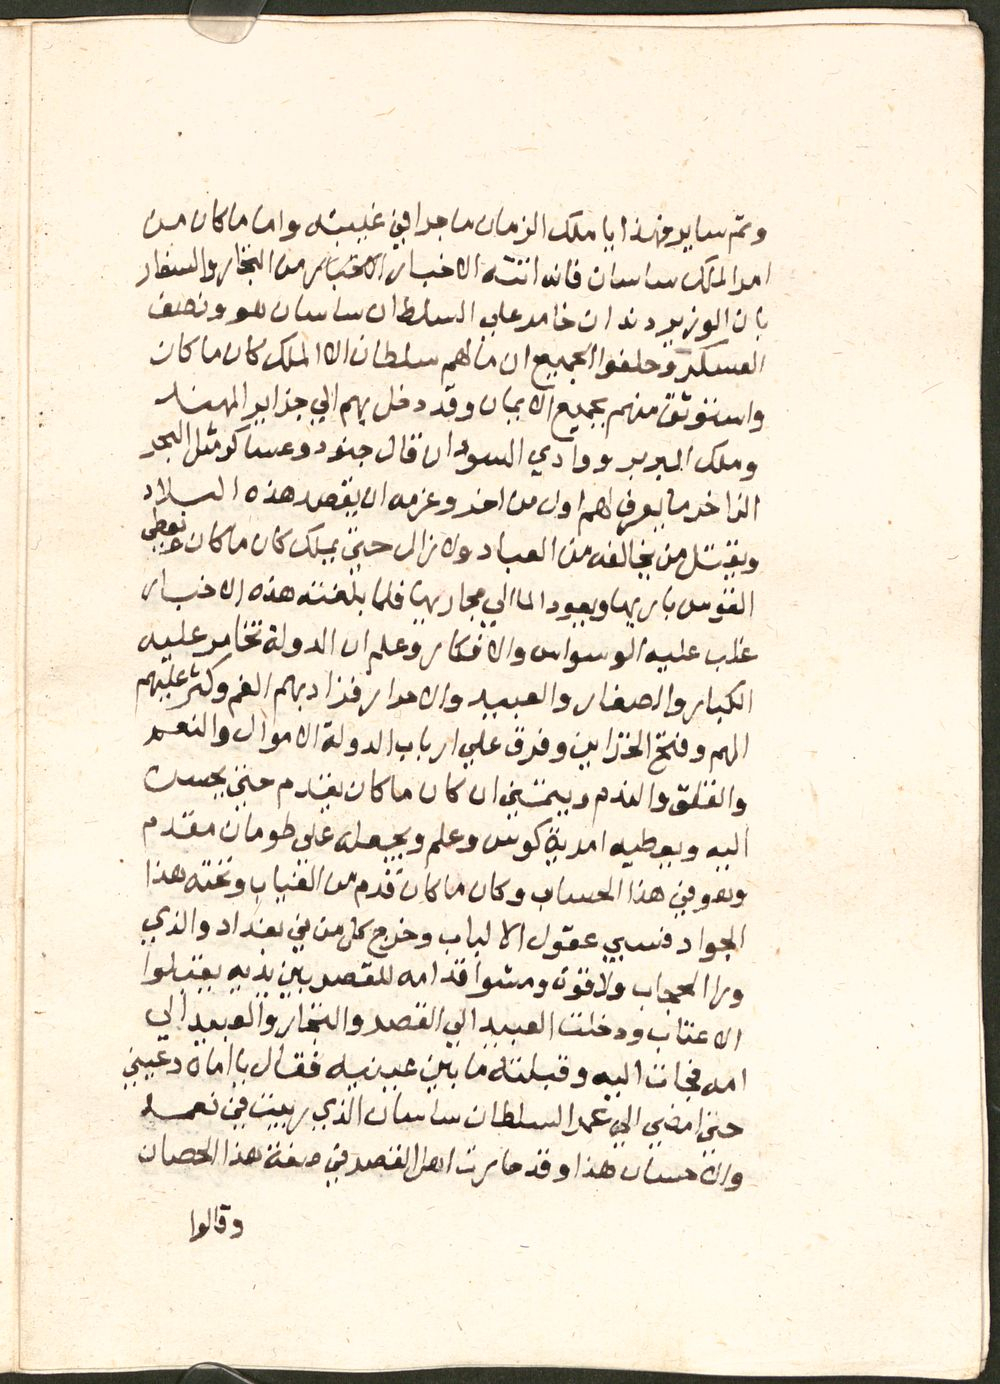 وتم ساير فهذا يا ملك الزمان ما جرا في غيبته واما ما كان من
امر الملك ساسان فانه اتته الاخبار الاختبار من التجار والسفار
بان الوزير دندان خامر علي السلطان ساسان هو ونصف
العسكر وحلفوا الجميع ان ما لهم سلطان الا الملك كان ما كان
واستوثق منهم بجميع الايمان وقد دخل بهم الي جزاير الهند
وملك البربر ووادي السودان قال جنود وعساكر مثل البحر
الزاخر ما يعرف لهم اول من اخر وعزمه ان يقصد هذه البلاد
ويقتل من يخالفه من العباد ولا زال حتي يملك كان ما كان وتعطي
القوس باريها ويعود الما الي مجاريها فلما بلغته هذه الاخبار
غلب عليه الوسواس والافكار وعلم ان الدولة تخامر عليه
الكبار والصغار والعبيد والاحرار فزاد بهم الغم وكثر عليهم
الهم وفتح الخزاين وفرق علي ارباب الدولة الاموال والنعم
والقلق والندم ويتمني ان كان ما كان يقدم حتي يحسن
اليه ويعطيه امرية كوس وعلم ويجعله علي طومان مقدم
وهو في هذا الحساب وكان ما كان قدم من الغياب وتحته هذا
الجواد فسبي عقول الالباب وخرج كل من في بغداد والذي
ورا الحجاب ولاقوه ومشوا قدامه للقصر بين يديه يقبلوا
الاعتاب ودخلت العبيد الي القصر والتجار والعبيد الي
امه فجات اليه وقبلته ما بين عينيه فقال يا اماه دعيني
حتي امضي الي عمر السلطان ساسان الذي ربيت في نعمه
والاحسان هذا وقد حارت اهل القصر في صفة هذا الحصان
وقالوا